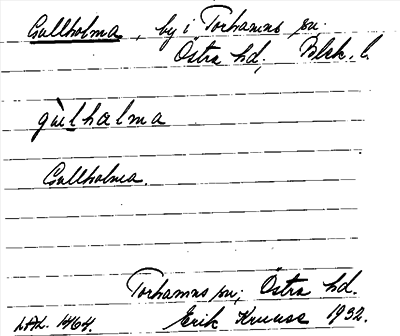 Gullholma, by i Torhamns sn;
Östra hd; Blek. l.
gùlhalma
Gullholma.
Torhamns sn; Östra hd.
Erik Kruuse 1932.